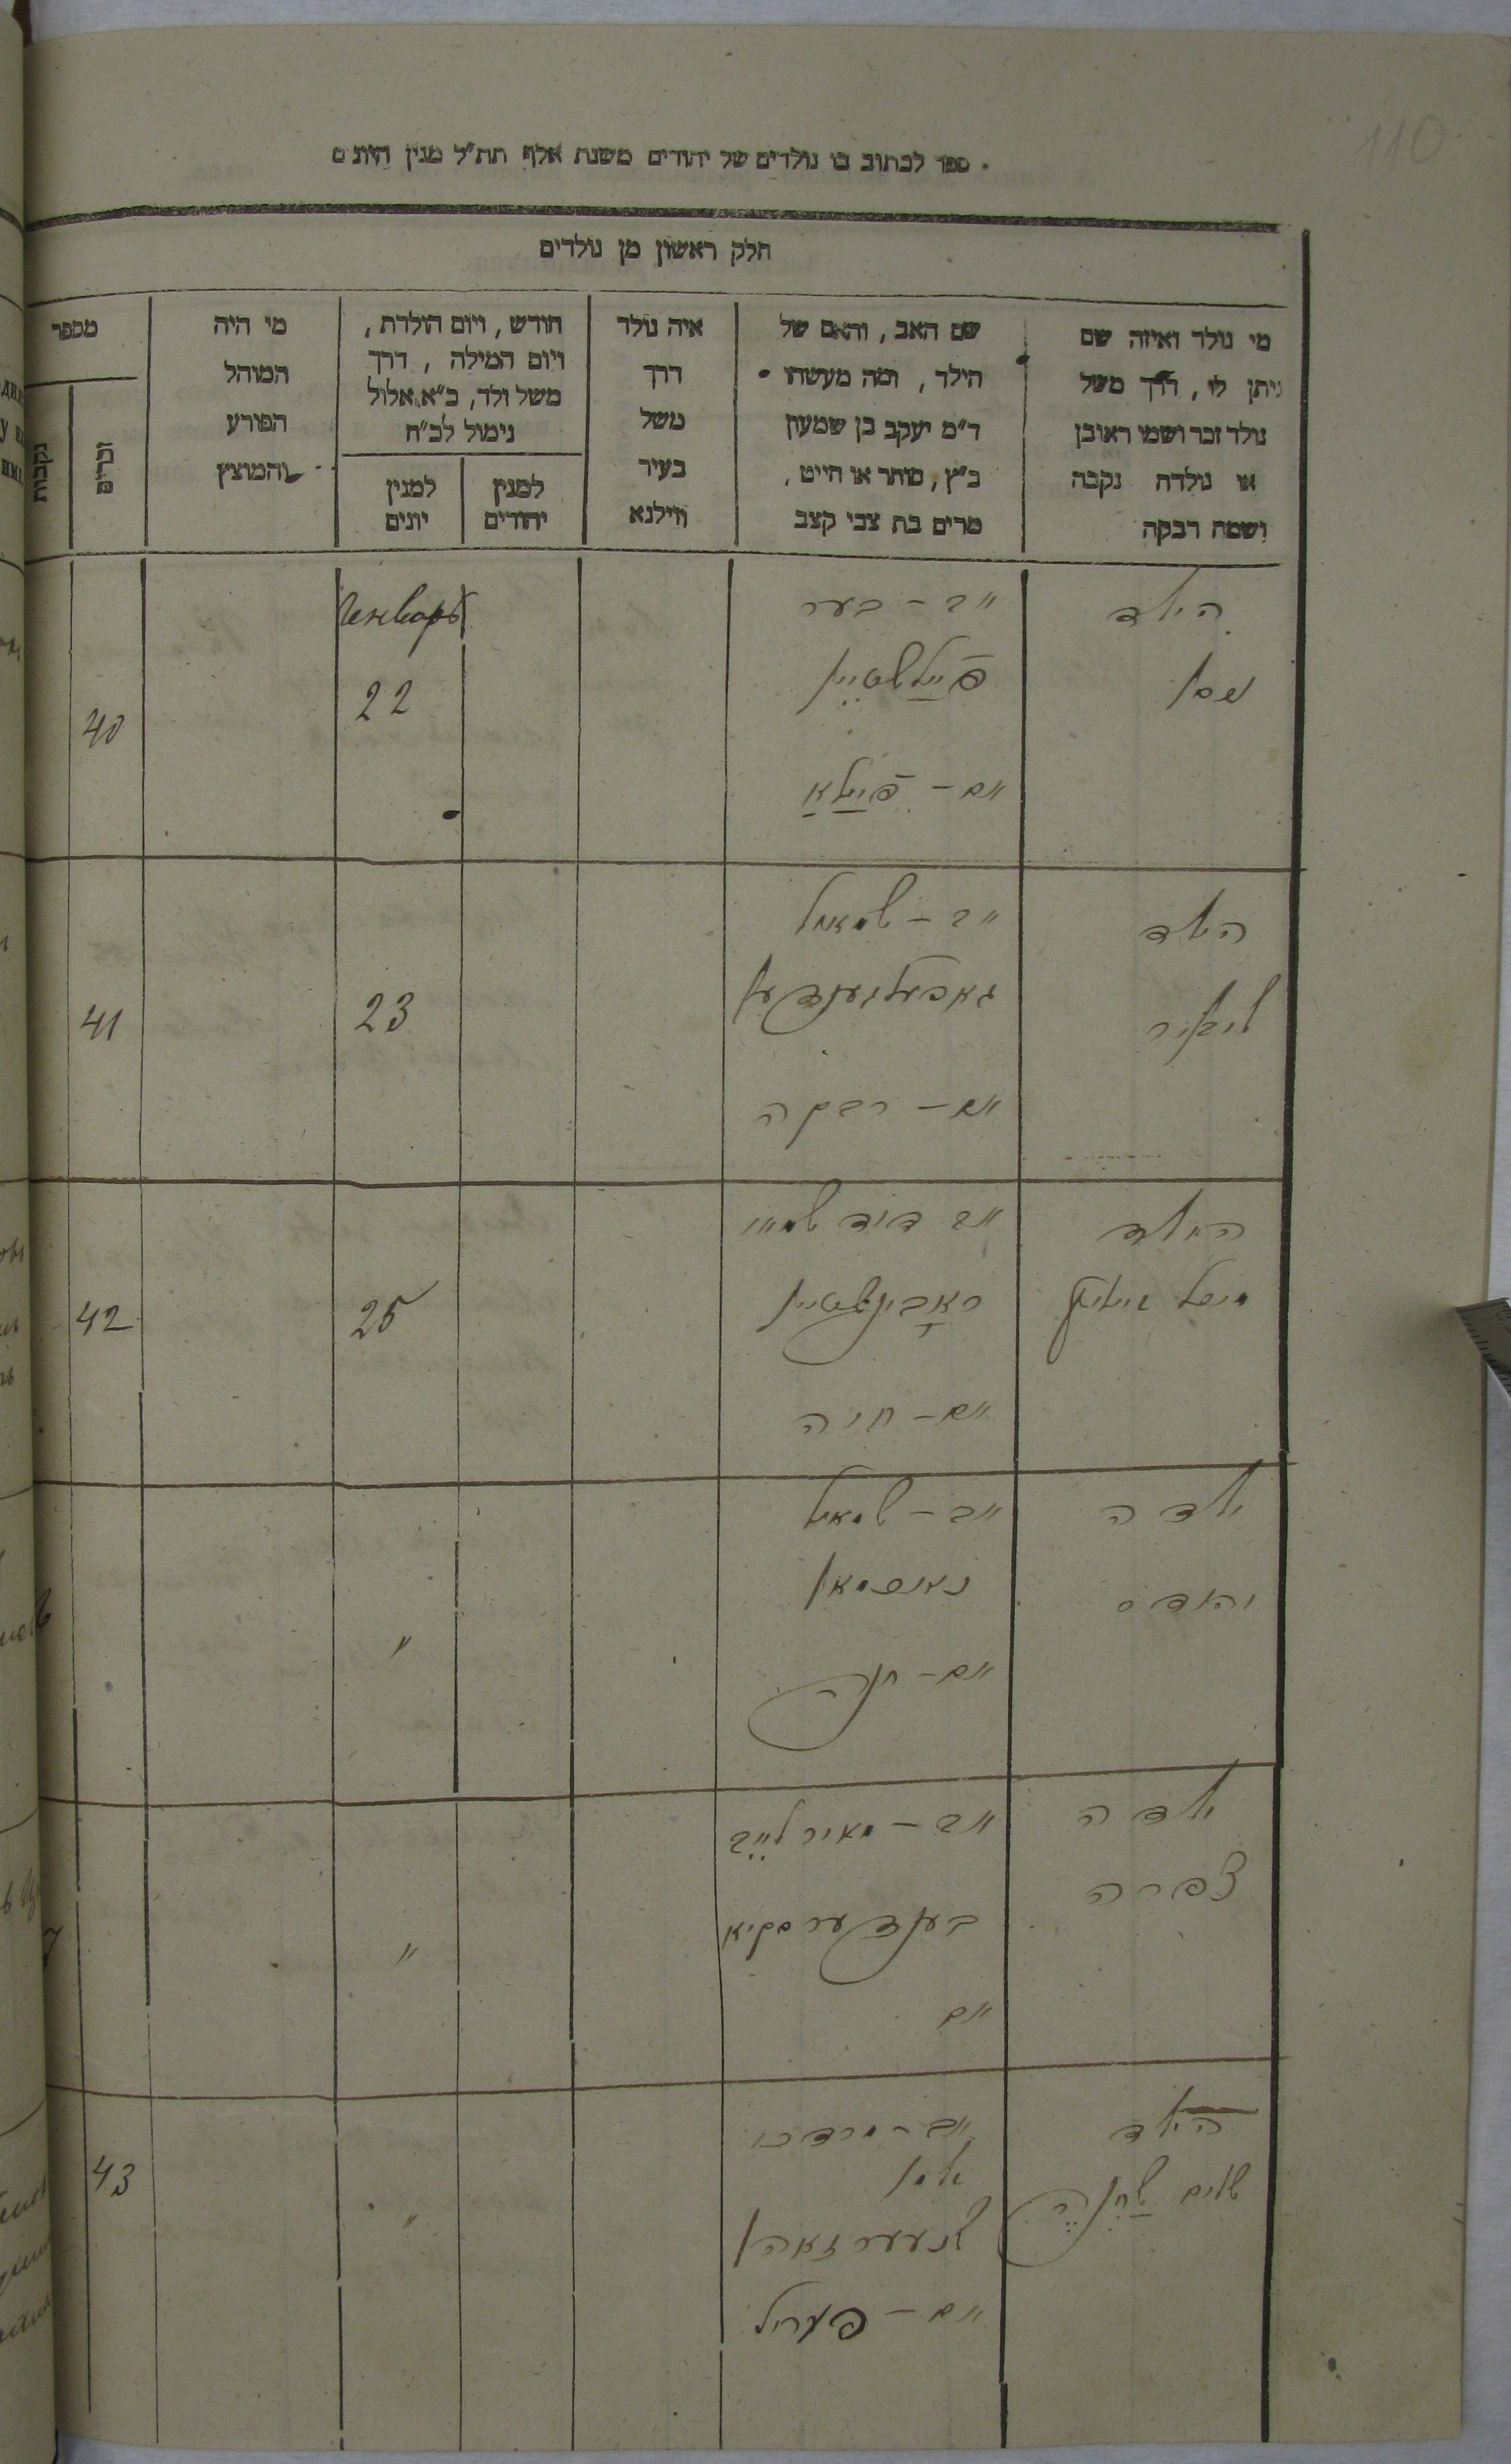 110
ספר לכתוב בו נולדים של יהודים משנת אלף תת״ל מנין היונים
חלק ראשון מן נולדים
מי נולד ואיזה שם
ניתן לו, דרך משל
נולד זכר ושמו ראובן
או נולדה נקבה
ושמה רבקה
שם האב, והאם של
הילד, ומה מעשהו
ד״מ יעקב בן שמעון
כ״ץ, סוחר או חייט,
מרים בת צבי קצב
איה נולד
דרך
משל
בעיר
ווילנא
חודש, ויום הולדת,
ויום המילה, דרך
משל ולד, כ״א אלול
נימול לכ״ח
למנין
יהודים
למנין
יונים
מי היה
המוהל
הפורע
והמוצץ
מספר
זכרים
נקבות
הילד
אב - בער
פיילשטיין
אם - פיילא
Генварь
22
40
הילד
אב - שמואל
אם - רבקה
23
41
הילד
אב דוד
ראבינשטיין
אם - חיה
25
42
ילדה
יהודס
אב - שמואל
אם - חנה
"
ילדה
צפרה
אב - מאיר לייב
אם
"
הילד
שלום
אב - מרדכי
שנעערזאהן
אם - פערל
"
43